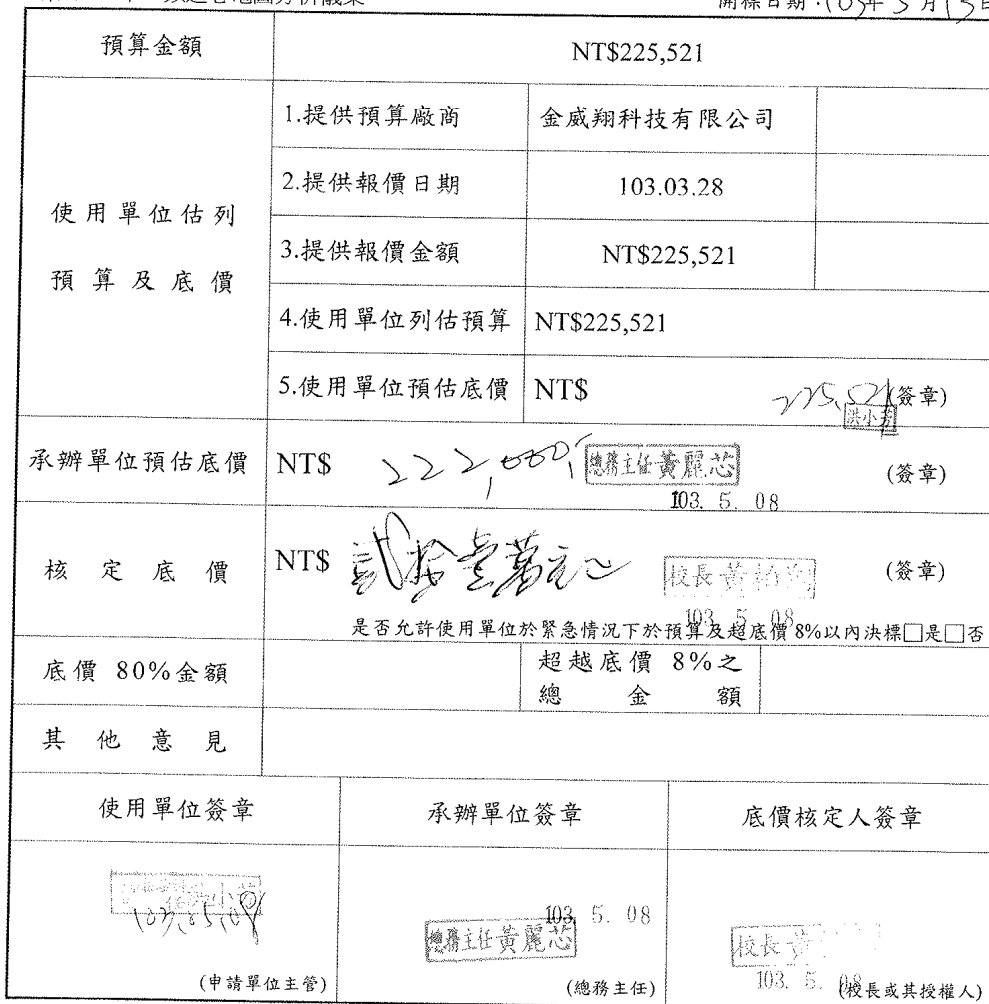 開標日期：103年5月13日
預算金額 NT$225,521
使用單位估列
預算及底價
1.提供預算廠商 金威翔科技有限公司
2.提供報價日期 103.03.28
3.提供報價金額 NT$225,521
4.使用單位列估預算 NT$225,521
5.使用單位預估底價 NT$ 225,521 (簽章)
洪小芳
承辦單位預估底價 NT$ 222,000 總務主任黃麗芯 (簽章)
103. 5. 08
核定底價 NT$ 貳拾壹萬元 校長黃柏翔 (簽章)
103. 5. 08
是否允許使用單位於緊急情況下於預算及超底價8%以內決標□是□否
底價 80%金額 超越底價 8%之
總金額
其他意見
使用單位簽章 承辦單位簽章 底價核定人簽章
103.05.08
103. 5. 08
總務主任黃麗芯
校長黃
103. 5. 08
(申請單位主管) (總務主任) (校長或其授權人)